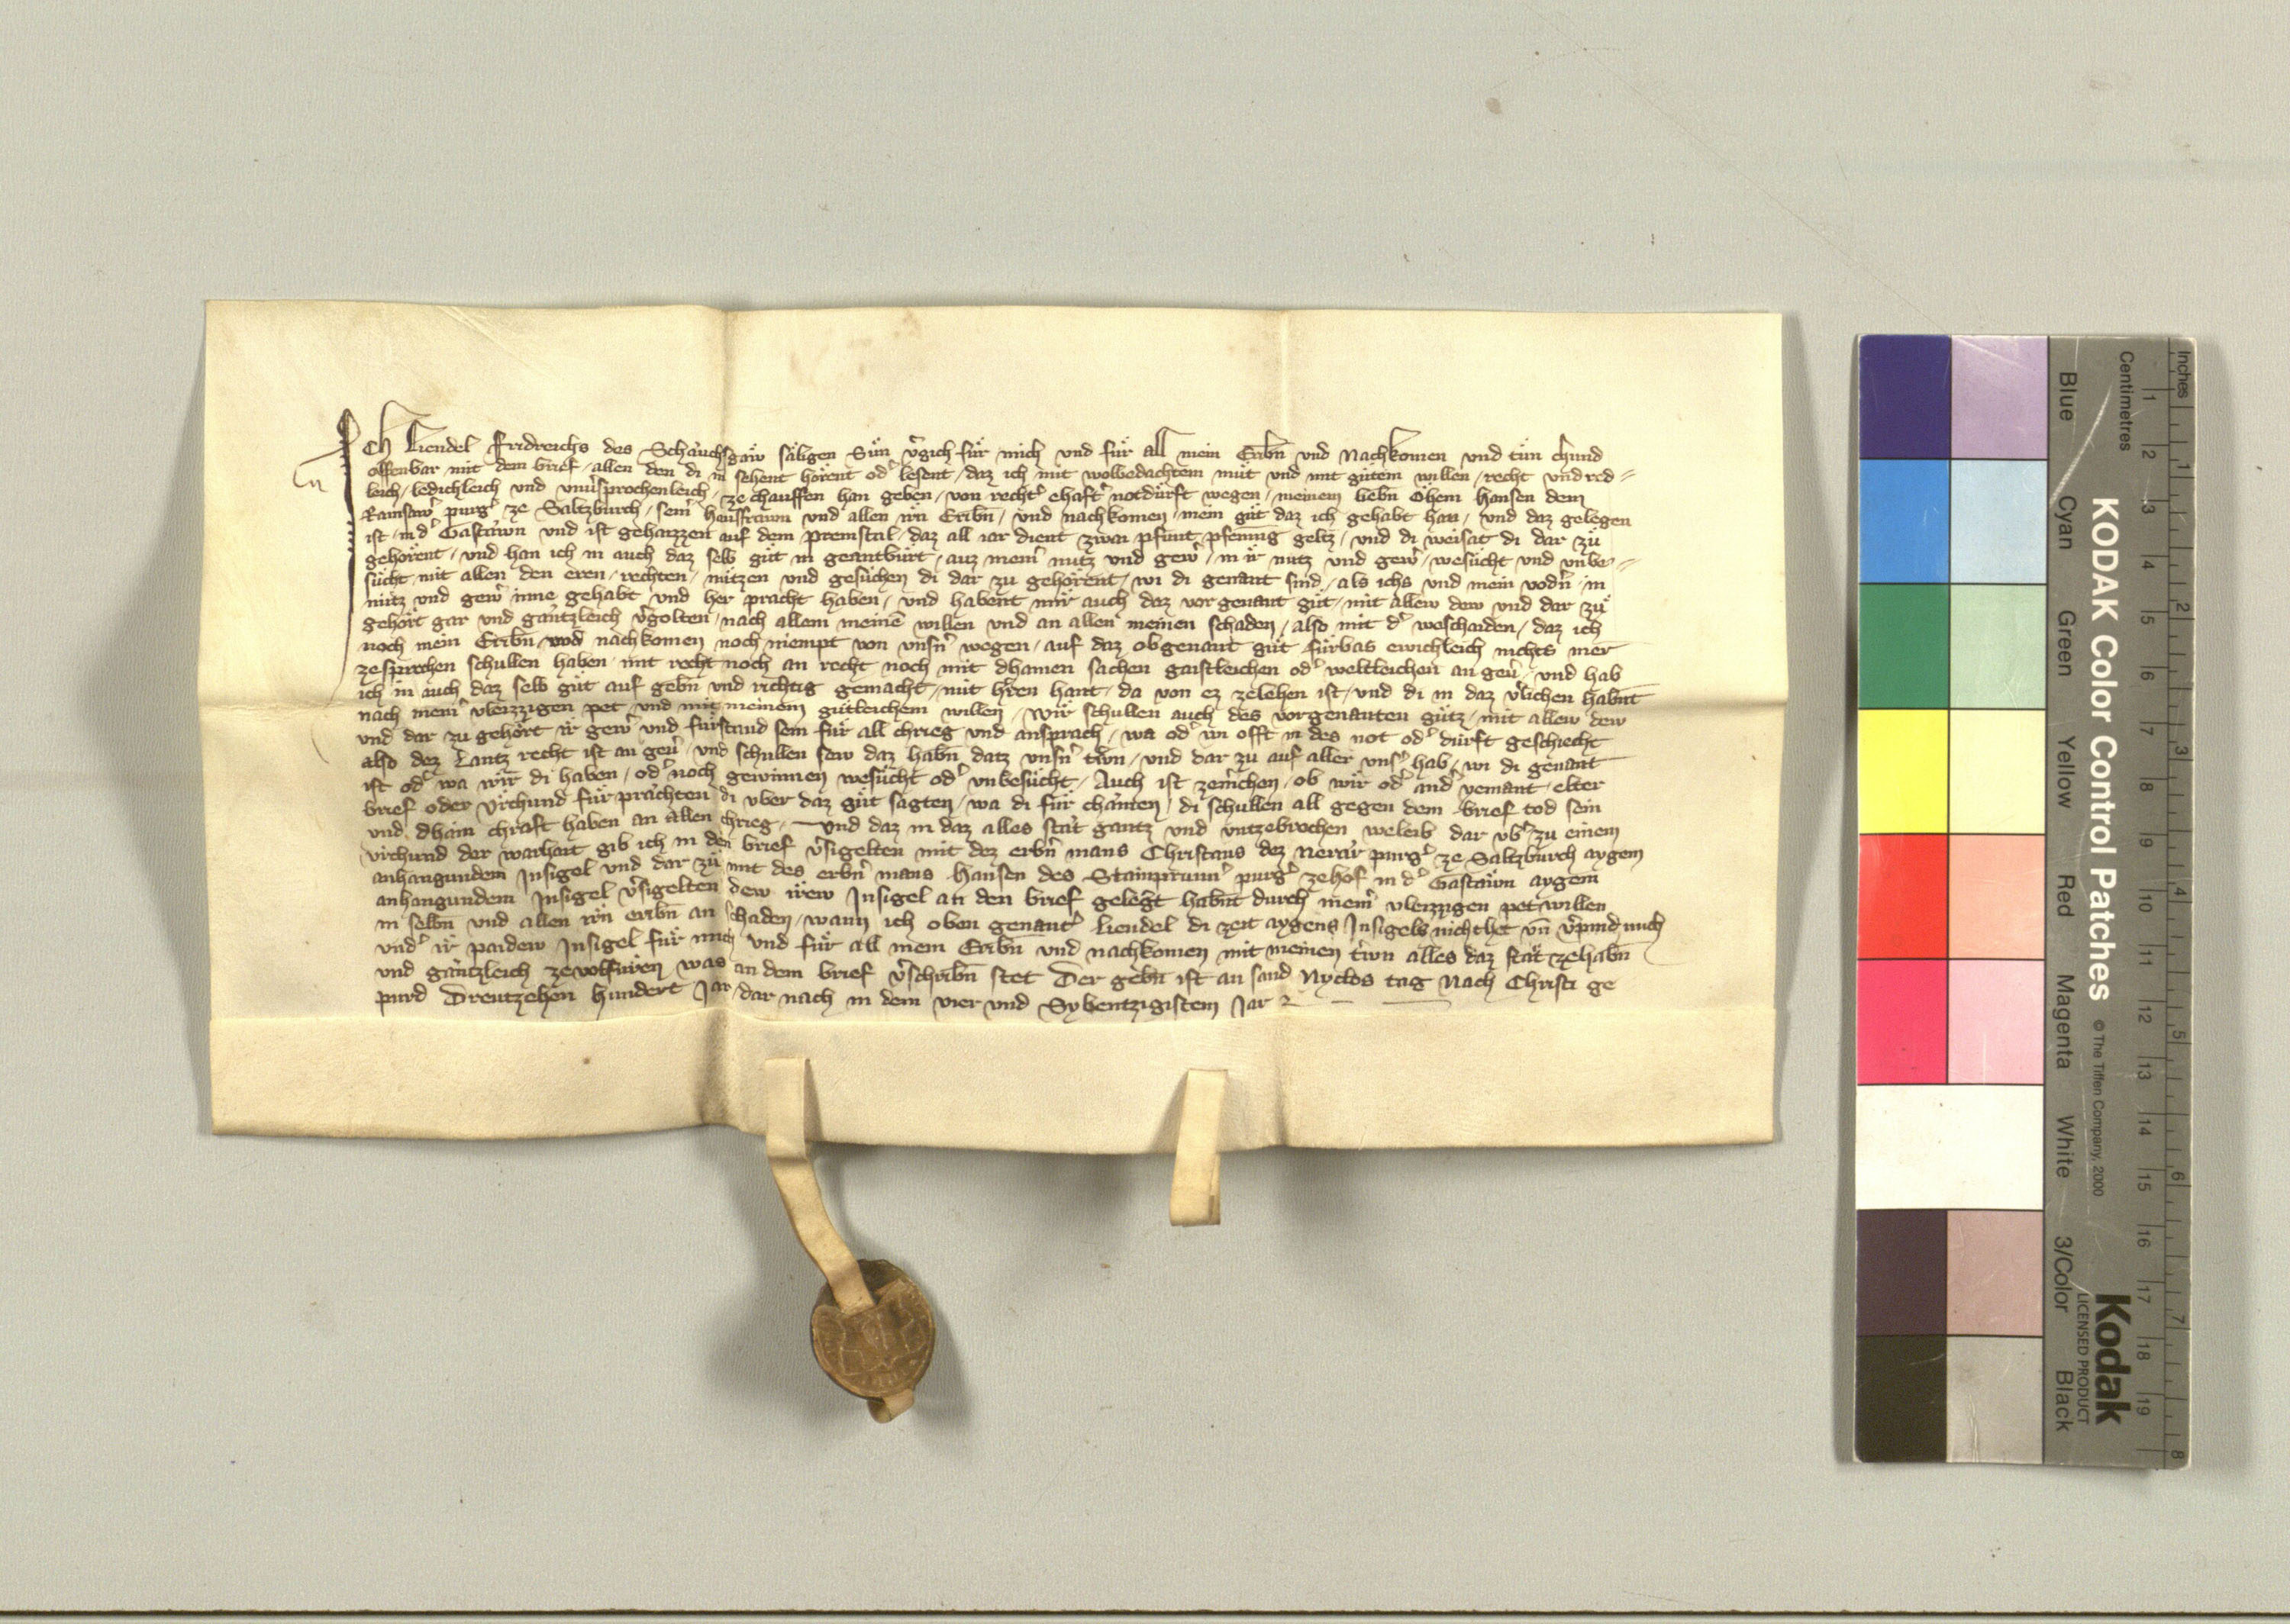 Ich Liendel Fridreichs des Schäuchsgäw säligen Sün v̾gich für mich und für all mein Eribn̄ und Nachkomen und tün chund
offenbar mit dem brief allen den di in sehent hörent od̾ lesent / daz ich mit wolbedachtem müt und mit gütem willen / recht und red=
leich / ledichleich und vnuersprochenleich / ze chauffen han geben / von recht̾ ehaft̾ notdürft wegen / meinem liebn̄ Öhem Hansen dem
Ramsaw̾ purg̾ ze Saltzburch / sein̾ hausfrawn und allen irn Eribn̄ / und nachkomen mein güt daz ich gehabt han / und daz gelegen
ist in d̾ Gastäwn und ist gehaizzen auf dem Premstal / daz all iar dient zwai pfunt pfennig geltz / und di weisat di dar zü
gehörent / und han ich in auch daz selb güt in geantbürt / auz mein̾ nutz und gew̾ / in ir nutz und gew̾ / wesücht und vnbe=
sücht mit allen den eren / rechten / nützen und gesüchen di dar zu gehörent / wi di genant sind / als ichs und mein vodn̾ / in
nütz und gew̾ inne gehabt und her pracht haben / und habent mir auch daz vorgenant güt / mit allew dew und dar zü
gehört gar und gäntzleich v̾golten / nach allem meinē willen und an allen meinen schaden / also mit d̾ weschaiden / daz ich
noch mein Eribn̄ und nachkomen noch niempt von vnsn̾ wegen / auf daz obgenant güt fürbas ewichleich nichts mer
zesprechen schullen haben / mit recht noch an recht noch mit dhainen sachen gaistleichen od̾ weltleichen an geu̾ / und hab
ich in auch daz selb güt auf gebn̄ und richtig gemacht / mit h̾ren hant / da von ez zelehen ist / und di in daz v̾lichen habnt
nach mein̾ vleizzigen pet / und mit meinem gütleichem willen / Wir schullen auch des vorgenanten gütz / mit allew dew
und dar zu gehört ir gew̾ und fürstand sein für all chrieg und ansprach / wa od̾ wi offt in des not od̾ dürft geschiecht
also dez Lantz recht ist an geu̾ / und schullen sew daz habn̄ datz vnsn̾ triwn / und dar zu auf aller vns̾ hab / wi di genant
ist od̾ wa wir di haben / od̾ noch gewinnen wesücht od̾ vnbesücht / Auch ist zem̾chen / ob wir od̾ and̾ yemant / elter
brief oder vrchund für prächten di vber daz güt sagten / wa di für chämen / di schullen all gegen dem brief tod sein
und dhain chraft haben an allen chrieg / — Und daz in daz alles stät gantz und vntzebrochen weleib dar vb̾ zu einem
vrchund der warhait gib ich in den brief v̾sigelten mit dez erbn̾ mans Christans dez Nerär purg̾ ze Saltzburch aygem
anhangundem Insigel und dar zü mit des erbn̾ mans Hansen des Stainprunn̾ purg̾ zehof in d̾ Gastäwn aygem
anhangundem Insigel v̾sigelten dew irew Insigel an den brief gelegt habnt durch mein̾ vleizzigen pet willen
in selbn̄ und allen irn eribn̄ an schaden / wann ich oben genant̾ Liendel di zeit aygens Insigels nicht het vn̄ v̾pind mich
vnd̾ ir paidew Insigel für mich und für all mein Eribn̄ und nachkomen mit meinen triwn alles daz stät zehabn̄
und gäntzleich zevolfüren was an dem brief v̾schribn̄ stet Der gebn̄ ist an sand Nyclos tag Nach Christi ge
purd Dreutzehen hundert Jar dar nach in dem vier und Sybentzigistem Jar
KODAK Color Control Patches
© The Tiffen Company, 2000
Kodak
LICENSED PRODUCT
Blue Cyan Green Yellow Red Magenta White 3/Color Black
Centimetres 1 2 3 4 5 6 7 8 9 10 11 12 13 14 15 16 17 18 19
Inches 1 2 3 4 5 6 7 8